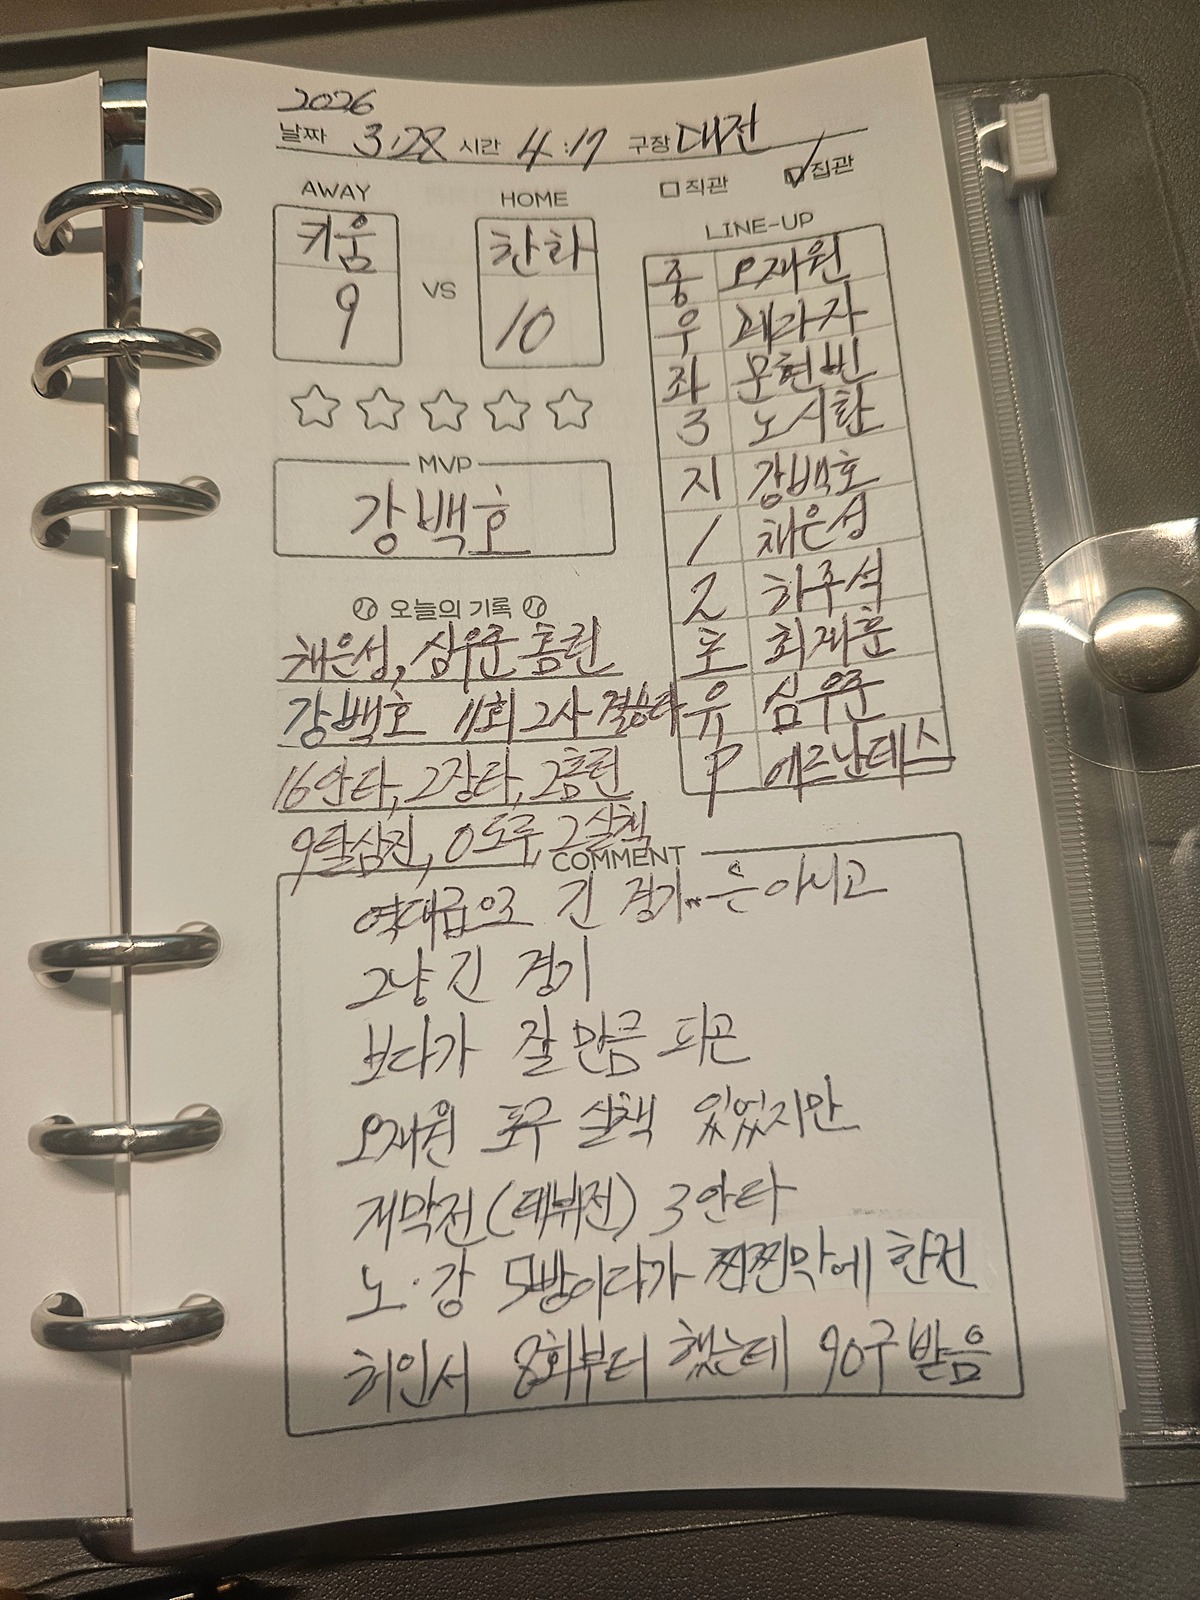 2026
날짜 3.28 시간 4:17 구장 대전
□ 직관 ☑ 집관
AWAY
키움
9
VS
HOME
한화
10
MVP
강백호
오늘의 기록
채은성, 심우준 홈런
강백호 11회 2사 결승타
16안타, 2장타, 2홈런
9탈삼진, 0도루, 2실책
LINE-UP
중 오재원
우 페라자
좌 문현빈
3 노시환
지 강백호
1 채은성
2 하주석
포 최재훈
유 심우준
P 에르난데스
COMMENT
역대급으로 긴 경기..은 아니고
그냥 긴 경기
보다가 잘 만큼 피곤
오재원 포구 실책 있었지만
개막전(데뷔전) 3안타
노·강 5방이다가 찐찐막에 한건
허인서 8회부터 했는데 90구 받음